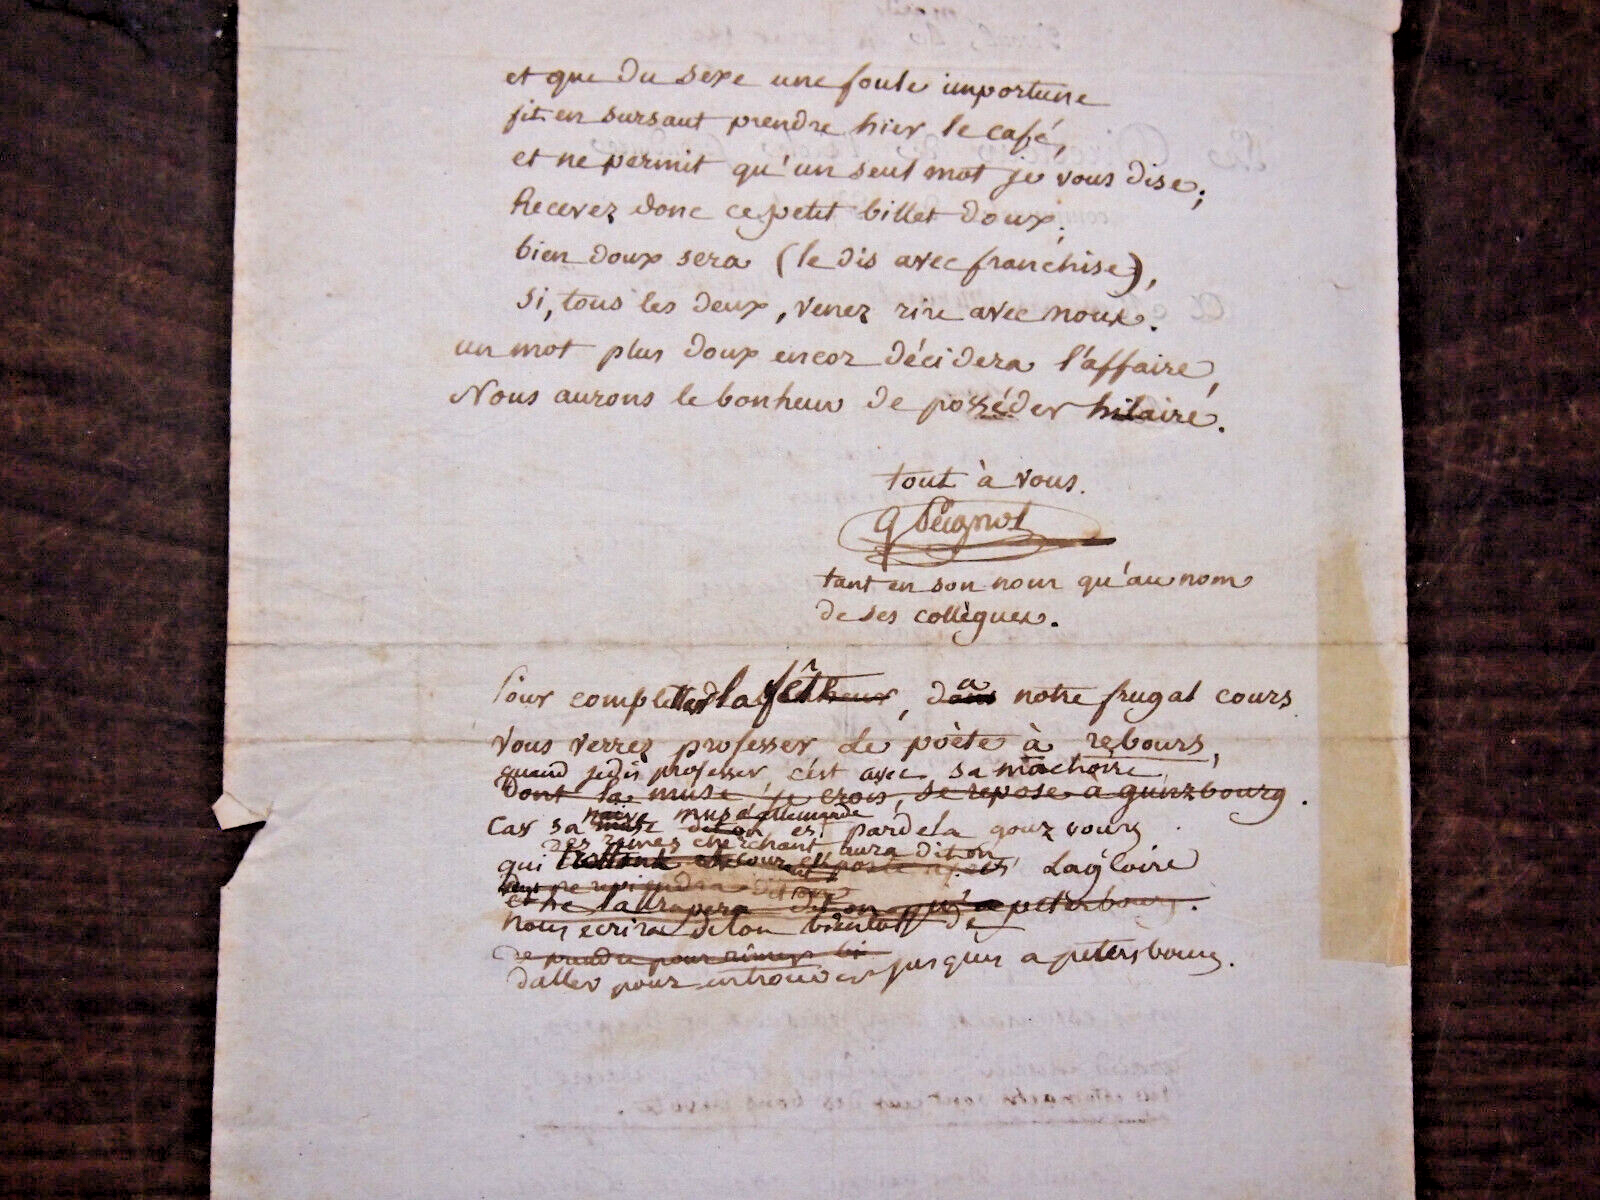 et que du sexe une foule importune
fit en sursaut prendre hier le café,
et ne permit qu'un seul mot je vous dise;
Recevez donc ce petit billet doux;
bien doux sera (le dis avec franchise),
si, tous les deux, venez rire avec nous.
un mot plus doux encor décidera l'affaire,
Nous aurons le bonheur de posséder hilaire.
tout à vous.
G Peignot
tant en son nom qu'au nom
de ses collègues.
Pour completter la fête, à notre frugal cours
vous verrez professer le poète à rebours,
quand je dis professer, c'est avec sa machoire
dont la muse, je crois, se repose a gunzbourg.
Car sa muse allemande
est pardela gouzvourg
des rimes cherchant, aura dit on
qui la gloire
et ne l'attrapera dit on qu'a peterbourg.
nous ecrira dit on bientot de
de prendre pour rimer
d'aller pour en trouver jusqu'a petersbourg.